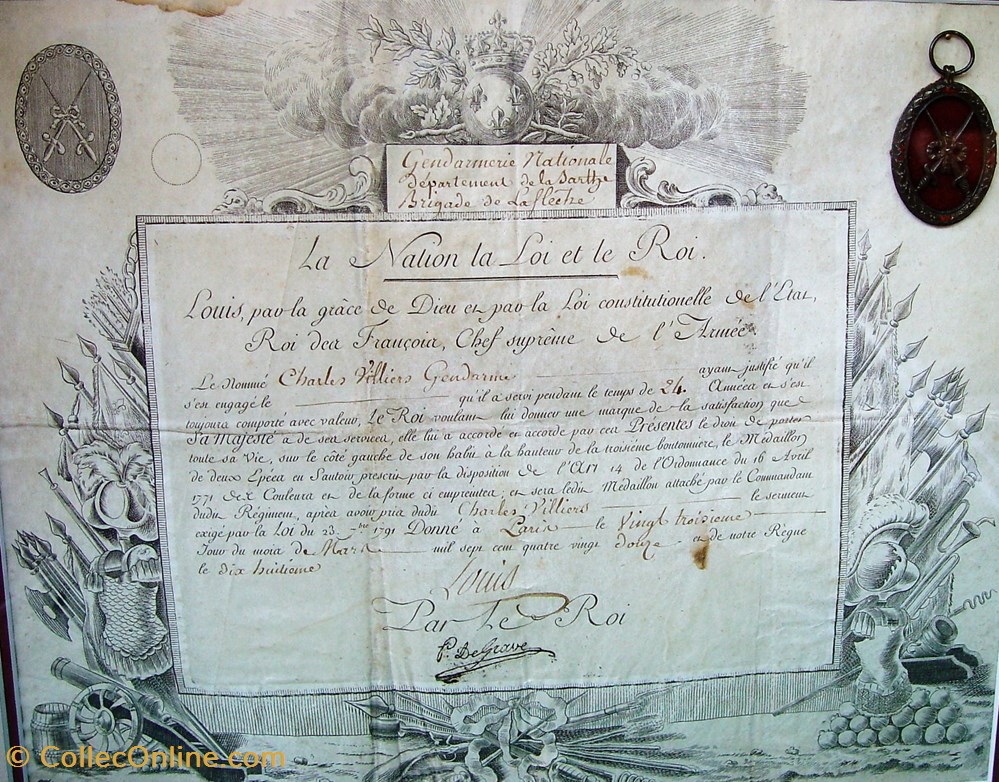 Gendarmerie Nationale
Département de la Sarthe
Brigade de Laflèche
La Nation la Loi et le Roi.
Louis, par la grâce de Dieu et par la Loi constitutionelle de l'Etat,
Roi des François, Chef suprême de l'Armée
Le Nommé Charles Villiers Gendarme ayant justifié qu'il
s'est engagé le qu'il a servi pendant le temps de 24 Années et s'est
toujours comporté avec valeur, Le Roi voulant lui donner une marque de la satisfaction que
Sa Majesté a de ses services, elle lui a accordé et accorde par ces Présentes le droit de porter
toute sa Vie, sur le côté gauche de son habit à la hauteur de la troisième boutonniere, le Médaillon
de deux Epées en Sautoir prescrit par la disposition de l'Art 14 de l'Ordonnance du 16 Avril
1771 des Couleurs et de la forme ci empreintes; et sera ledit Médaillon attaché par le Commandant
dudit Régiment, après avoir pris dudit Charles Villiers le serment
exigé par la Loi du 23 7bre 1791 Donné à Paris le Vingt troisieme
Jour du mois de Mars mil sept cent quatre vingt douze et de notre Règne
le dix huitieme
Louis
Par Le Roi
P. DeGrave
© CollecOnline.com